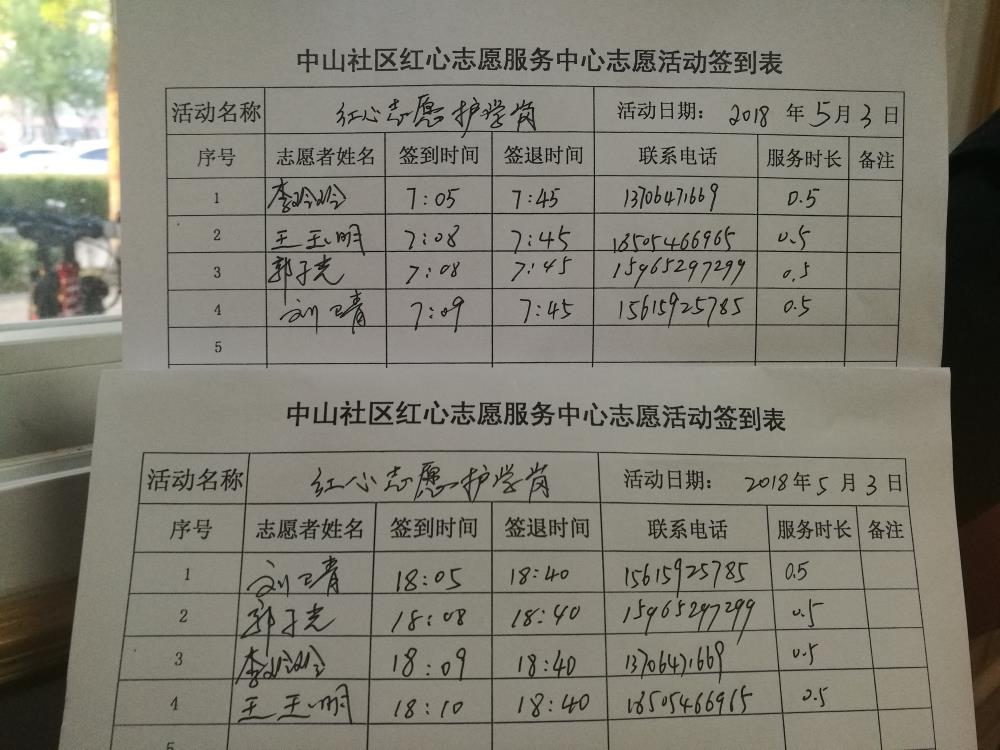 中山社区红心志愿服务中心志愿活动签到表
活动名称 红心志愿护学岗 活动日期： 2018 年 5 月 3 日
序号 志愿者姓名 签到时间 签退时间 联系电话 服务时长 备注
1 李玲玲 7:05 7:45 13706471669 0.5
2 王玉明 7:08 7:45 18505466965 0.5
3 郭子光 7:08 7:45 15965297299 0.5
4 刘卫青 7:09 7:45 15615925785 0.5
5
中山社区红心志愿服务中心志愿活动签到表
活动名称 红心志愿护学岗 活动日期： 2018 年 5 月 3 日
序号 志愿者姓名 签到时间 签退时间 联系电话 服务时长 备注
1 刘卫青 18:05 18:40 15615925785 0.5
2 郭子光 18:08 18:40 15965297299 0.5
3 李玲玲 18:09 18:40 13706471669 0.5
4 王玉明 18:10 18:40 18505466965 0.5
5